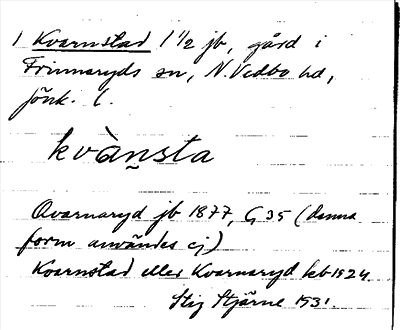 1 Kvarnstad 1 1/2 jb, gård i
Frinnaryds sn, N. Vedbo hd,
Jönk. l.
kvàn̬sta
Qvarnaryd jb 1877, G 35 (denna
form användes ej)
Kvarnstad eller Kvarnaryd kb 1924.
Stig Stjärne 1931.